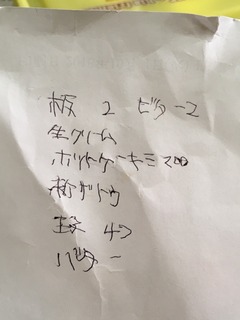 板 2 ビター2
生クリーム
ホットケーキミ200
粉ザトウ
4つ
バター